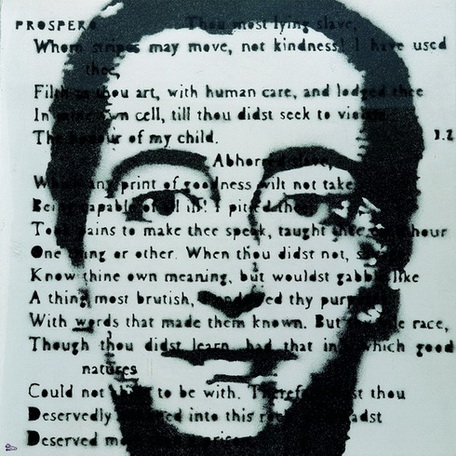 PROSPERO Thou most lying slave,
Whom stripes may move, not kindness! I have used
thee,
Filth as thou art, with human care, and lodged thee
In mine own cell, till thou didst seek to violate
The honour of my child. 1.2
Abhorred slave,
any print of goodness wilt not take
Being capable of all ill! I pitied thee
Took pains to make thee speak, taught thee hour
One thing or other. When thou didst not,
Know thine own meaning, but wouldst gabble like
A thing most brutish, endowed thy purposes
With words that made them known. But vile race,
Though thou didst learn, had that in which good
natures
Could not to be with. Therefore thou
Deservedly into this
Deserved